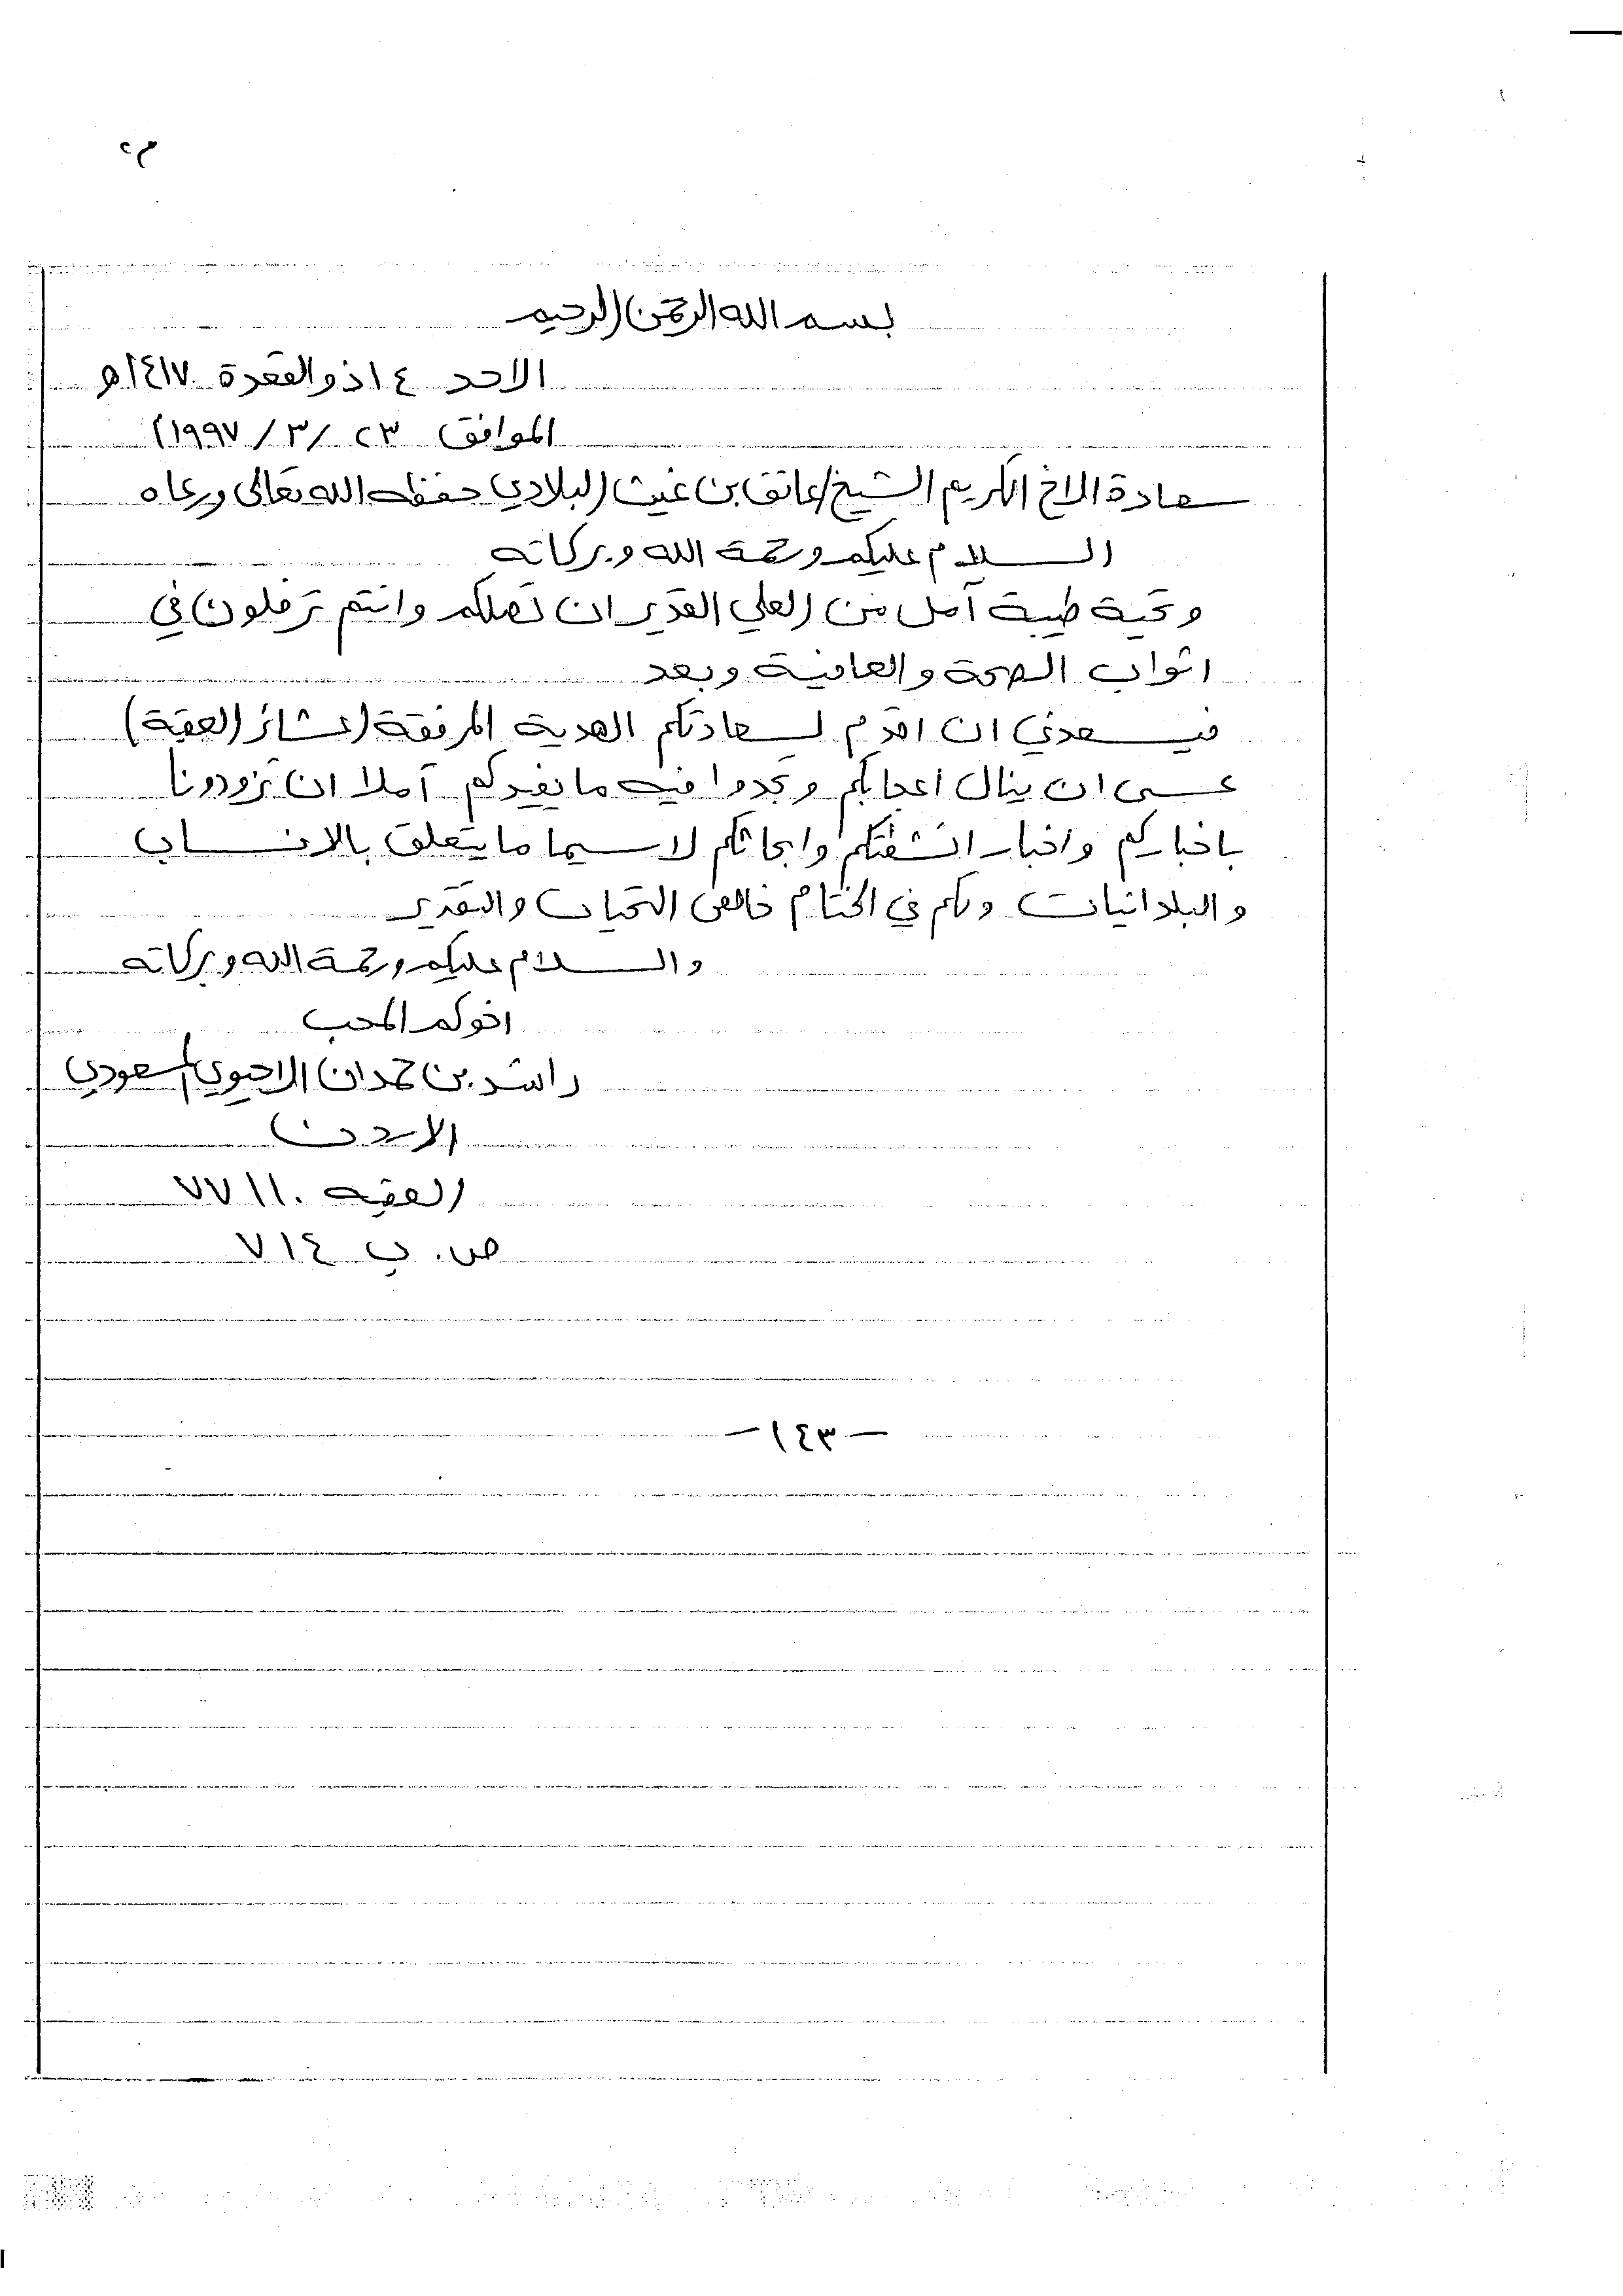 م٢
بسم الله الرحمن الرحيم
الاحد ١٤ ذو القعدة ١٤١٧ه
الموافق ٢٣/٣/١٩٩٧م
سعادة الاخ الكريم الشيخ/عاتق بن غيث البلادي حفظه الله تعالى ورعاه
السلام عليكم ورحمة الله وبركاته
وتحية طيبة آمل من العلي القدير ان تصلكم وانتم ترفلون في
اثواب الصحة والعافية وبعد
فيسعدني ان اقدم لسعادتكم الهدية المرفقة (عشائر العقبة)
عسى ان ينال اعجابكم وتجدوا فيه ما يفيدكم آملا ان تزودونا
باخباركم واخبار انشطتكم وابحاثكم لاسيما ما يتعلق بالانساب
والبلدانيات ولكم في الختام خالص التحيات والتقدير
والسلام عليكم ورحمة الله وبركاته
اخوكم المحب
راشد بن حمدان الاحيوي المسعودي
الاردن
العقبه ٧٧١١٠
ص.ب ٧١٤
-١٤٣-